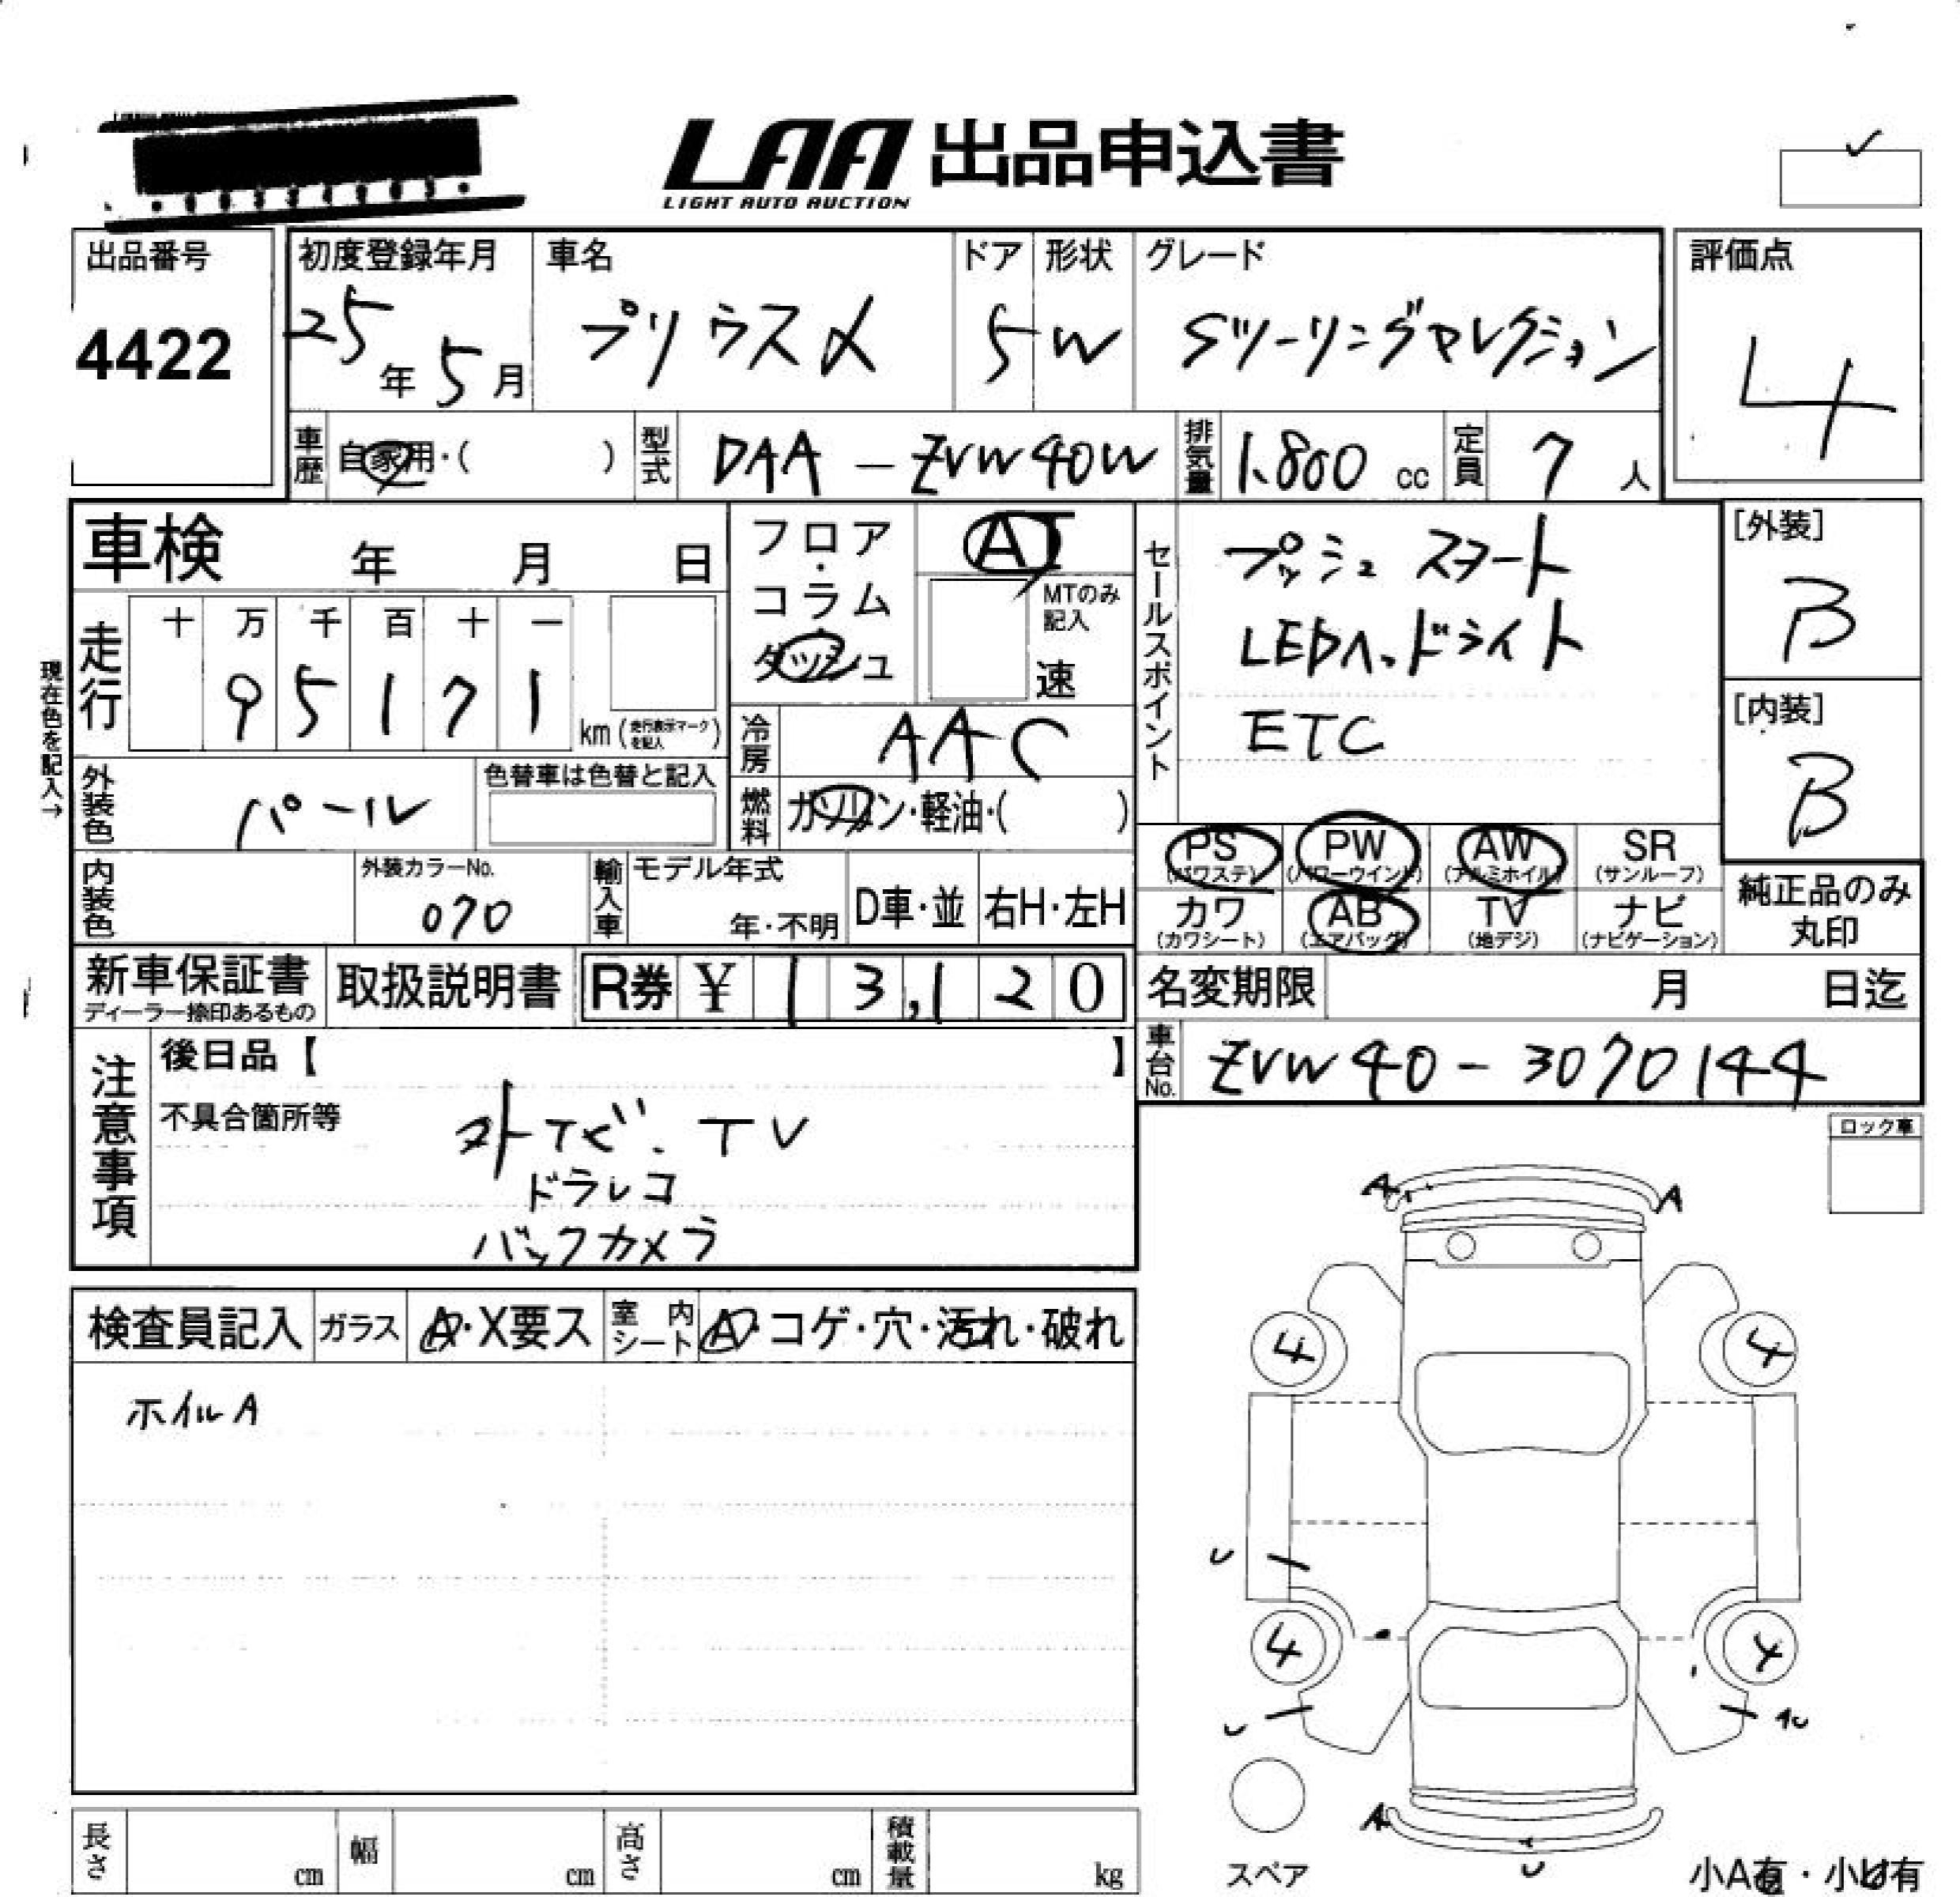 LAA 出品申込書
LIGHT AUTO AUCTION
出品番号
4422
初度登録年月
25年5月
車名
プリウスα
ドア
5
形状
W
グレード
Sツーリングセレクション
評価点
4
車歴 自家用・( )
型式 DAA-ZVW40W
排気量 1,800 cc
定員 7 人
車検 年 月 日
フロア・コラム・ダッシュ
AT
MTのみ記入
速
現在色を記入→
走行
十 万 千 百 十 一
9 5 1 7 1
km(走行表示マークを記入)
冷房 AAC
外装色 パール
色替車は色替と記入
燃料 ガソリン・軽油・( )
内装色
外装カラーNo.
070
輸入車 モデル年式
年・不明
D車・並
右H・左H
セールスポイント
プッシュスタート
LEDヘッドライト
ETC
[外装]
B
[内装]
B
PS (パワステ)
PW (パワーウインド)
AW (アルミホイル)
SR (サンルーフ)
カワ (カワシート)
AB (エアバッグ)
TV (地デジ)
ナビ (ナビゲーション)
純正品のみ丸印
新車保証書
ディーラー捺印あるもの
取扱説明書
R券 ¥ 13,120
名変期限 月 日迄
車台No. ZVW40-3070144
注意事項
後日品【 】
不具合箇所等
TV
ドラレコ
バックカメラ
ロック車
検査員記入
ガラス A・X要ス
室内シート A・コゲ・穴・汚れ・破れ
ホイルA
A A
4 4
U
4 4
U
A
U
スペア
小A有・小U有
長さ cm
幅 cm
高さ cm
積載量 kg